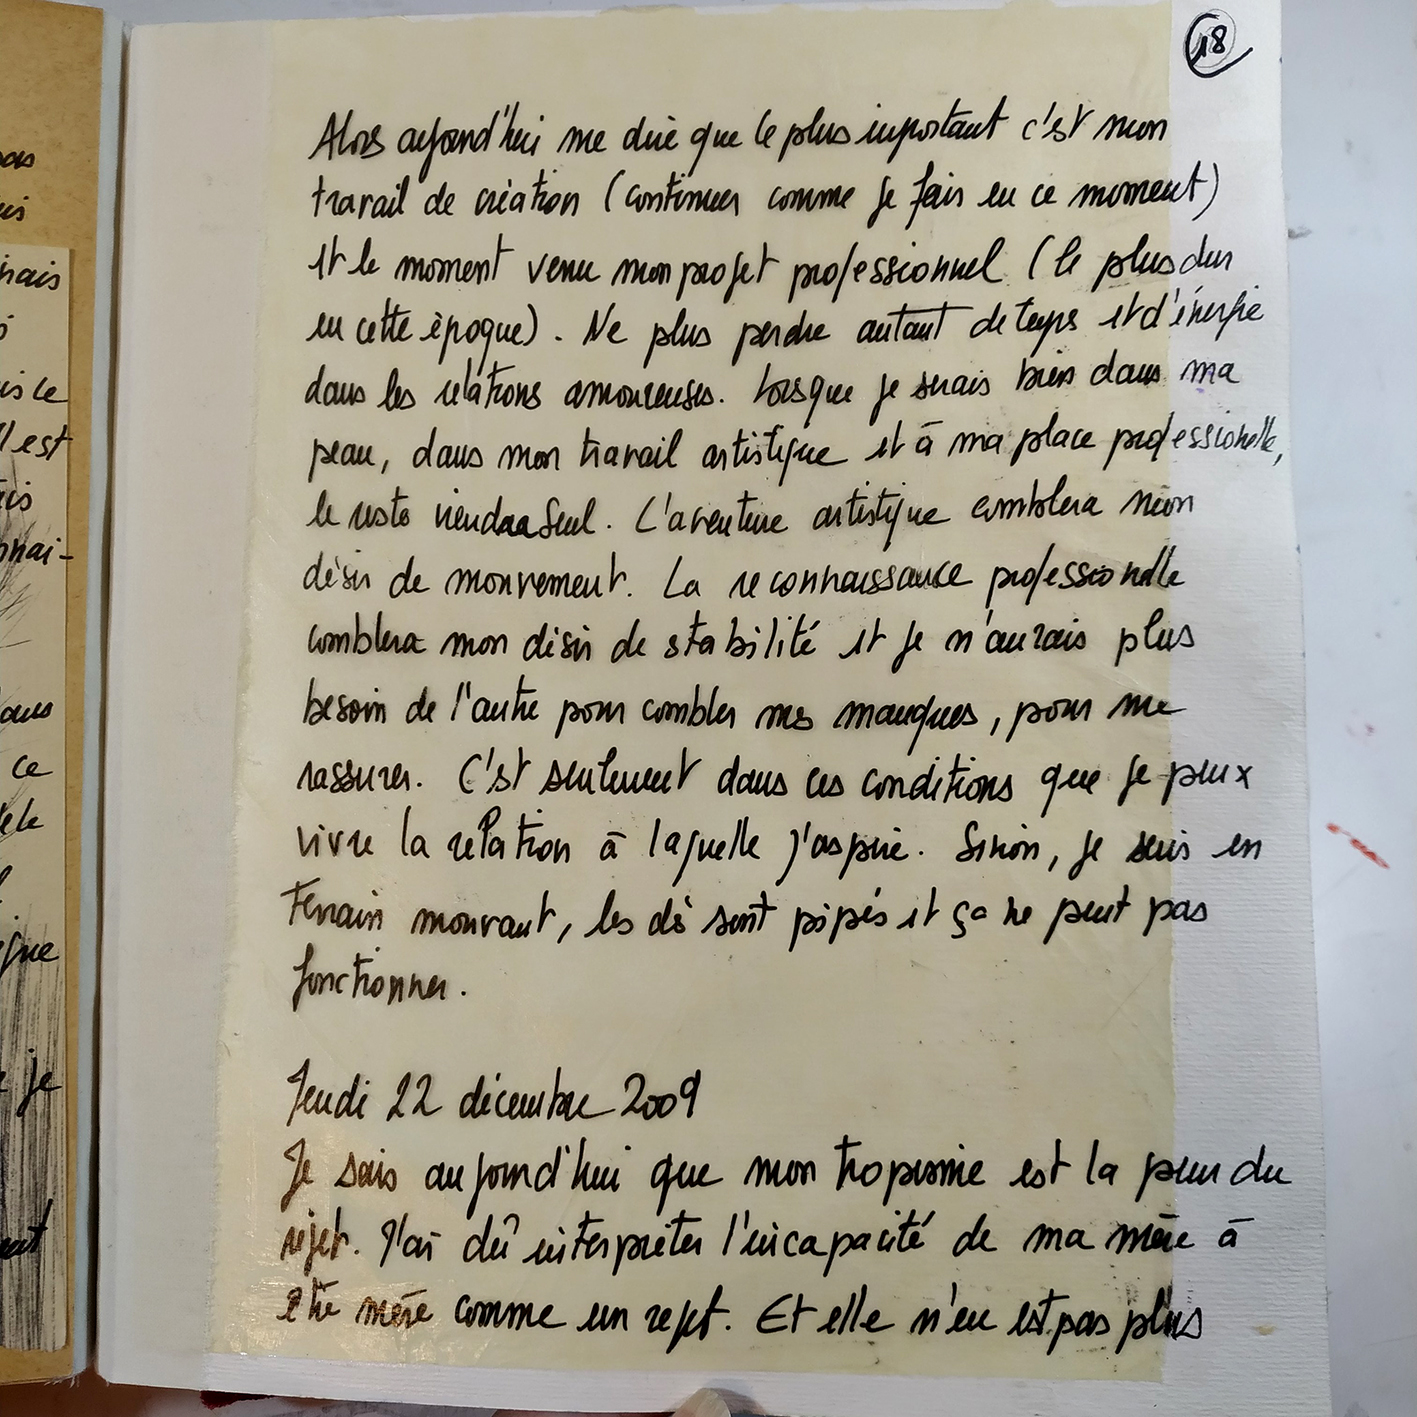 18
Alors aujourd'hui me dire que le plus important c'est mon
travail de création (continuer comme je fais en ce moment)
et le moment venu mon projet professionnel (le plus dur
en cette époque). Ne plus perdre autant de temps et d'énergie
dans les relations amoureuses. Lorsque je serais bien dans ma
peau, dans mon travail artistique et à ma place professionelle,
le reste viendra seul. L'aventure artistique comblera mon
désir de mouvement. La reconnaissance professionelle
comblera mon désir de stabilité et je n'aurais plus
besoin de l'autre pour combler mes manques, pour me
rassurer. C'est seulement dans ces conditions que je peux
vivre la relation à laquelle j'aspire. Sinon, je suis en
terrain mouvant, les dé sont pipés et ça ne peut pas
fonctionner.
Jeudi 22 décembre 2009
Je sais aujourd'hui que mon tropisme est la peur du
rejet. J'ai dû interpréter l'incapacité de ma mère à
être mère comme un rejet. Et elle n'en est pas plus
nais
is ce
l est
nnai-
ce
je